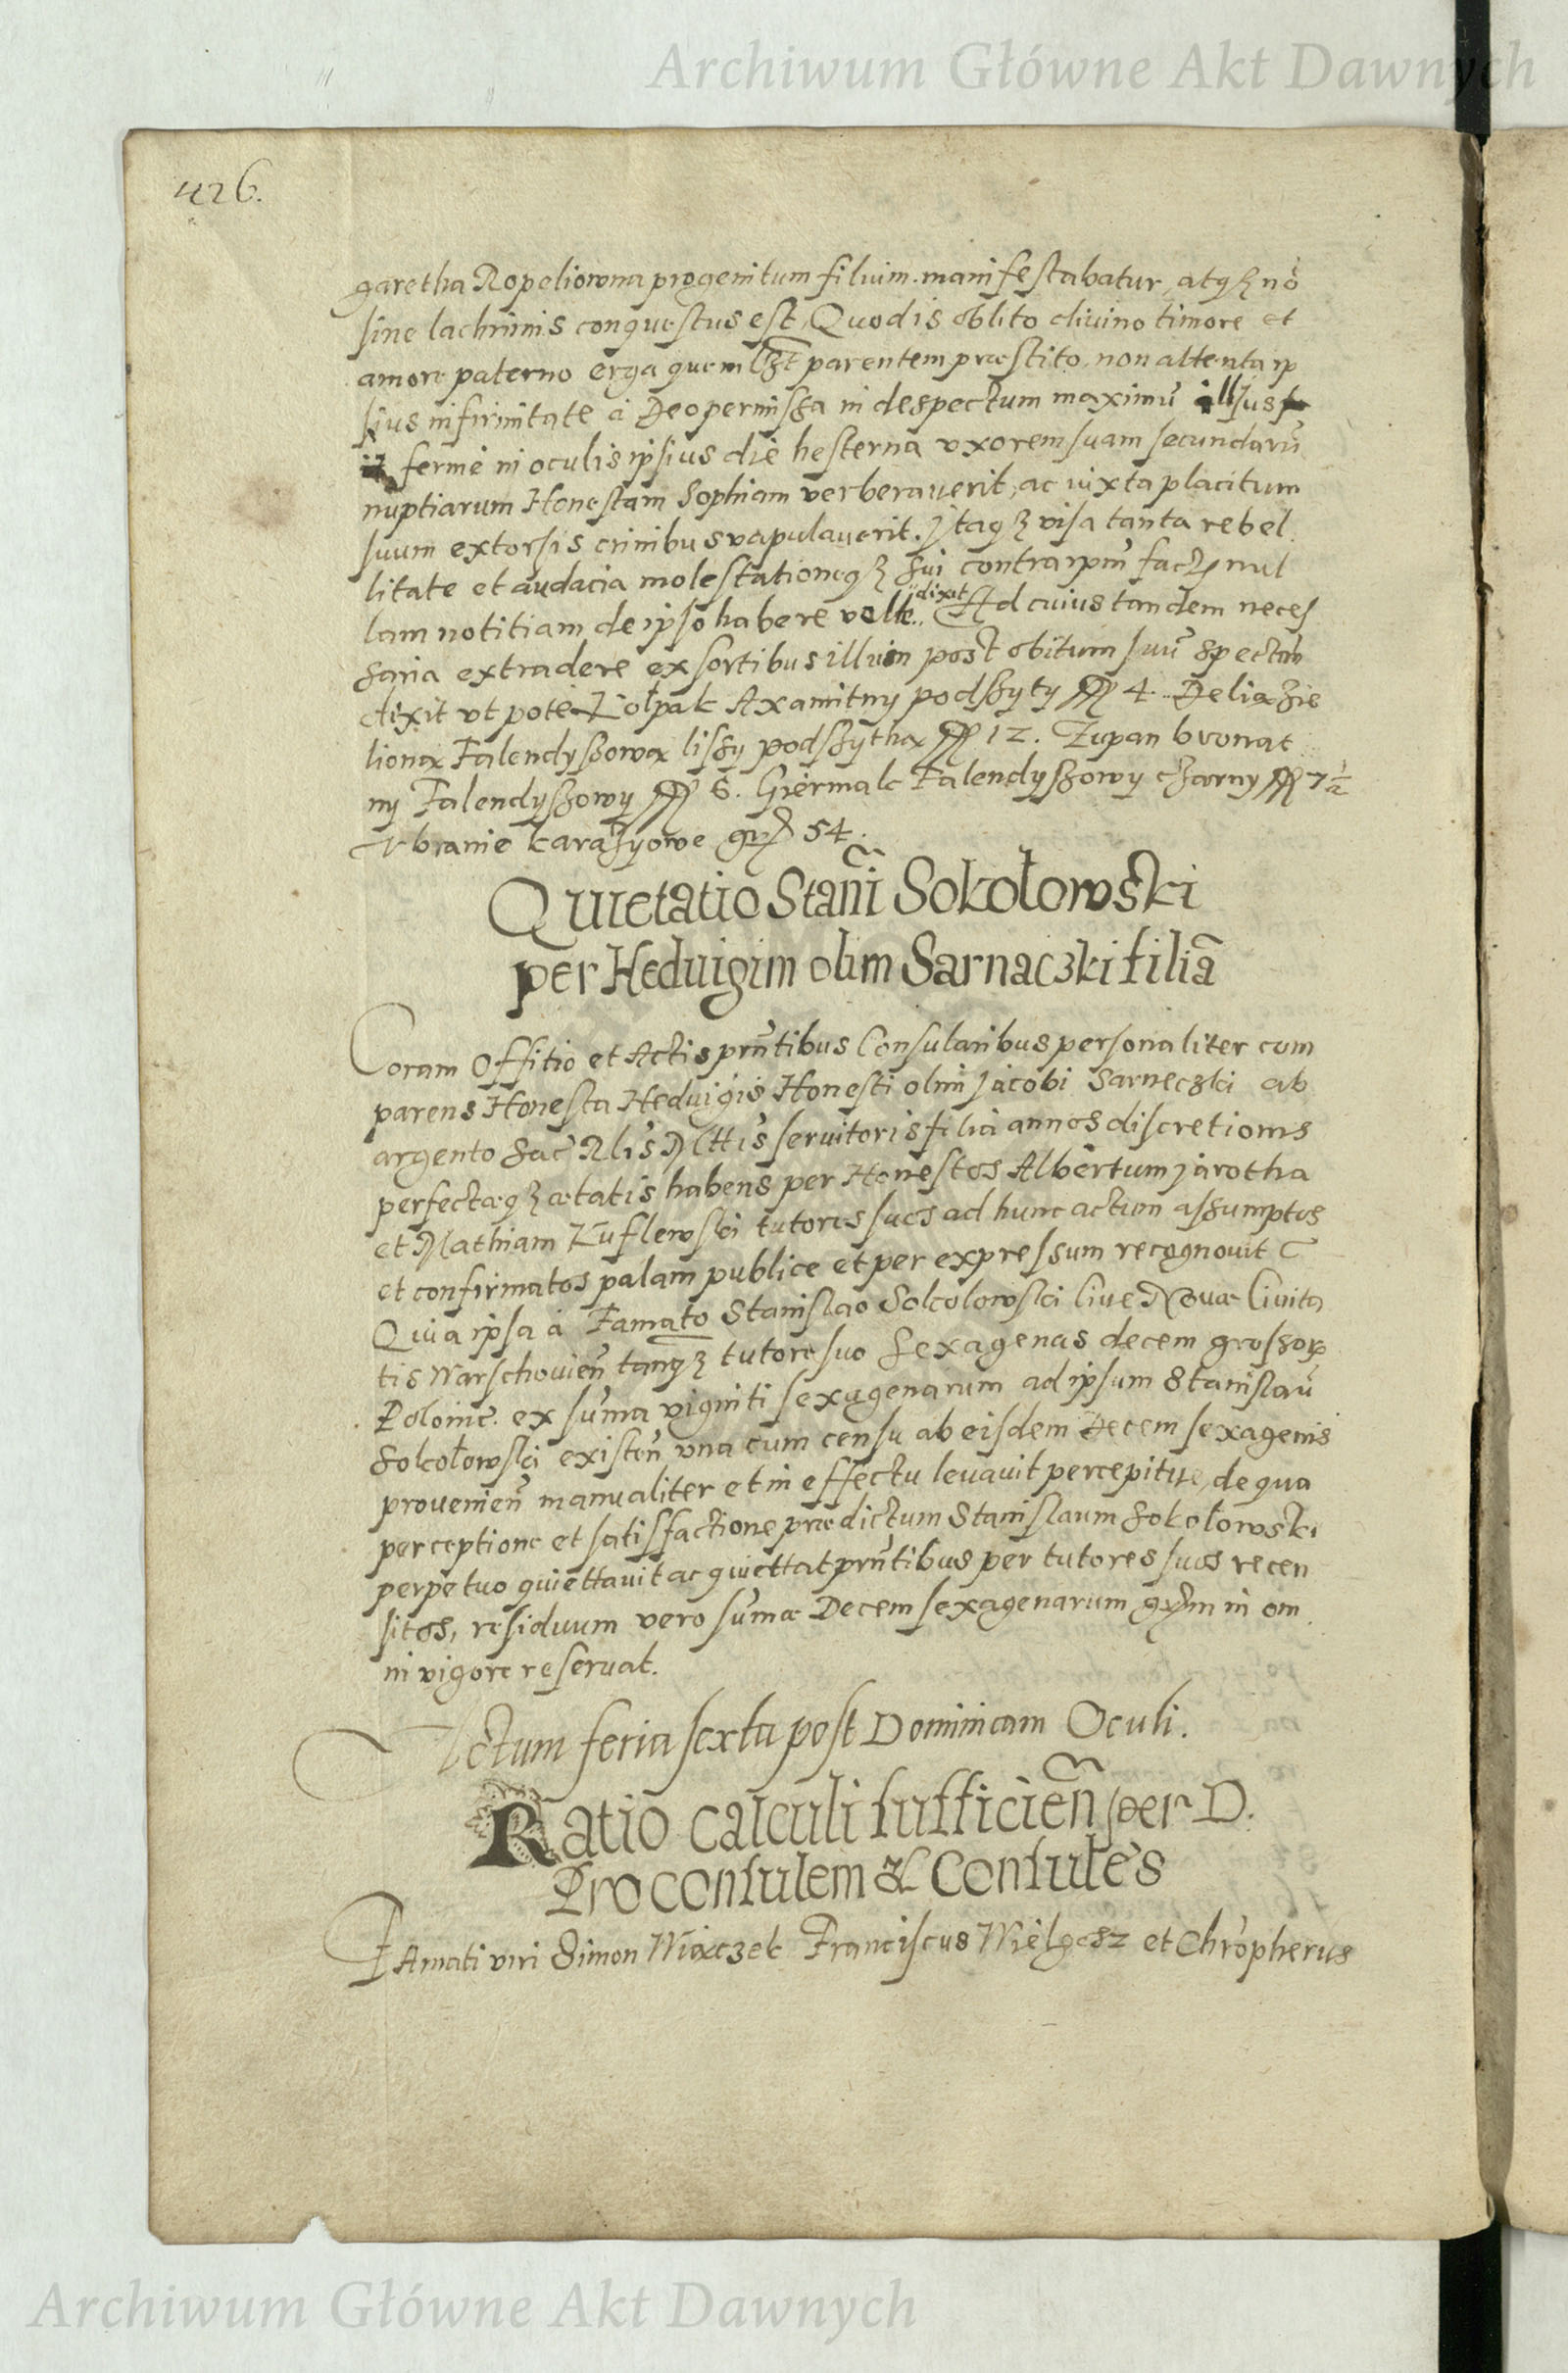 Archiwum Główne Akt Dawnych
426.
garetha Ropeliowna progenitum filium manifestabatur, atqꝫ nõ
sine lachrimis conquestus est, Quod is oblito divino timore et
amore paterno erga quemlꝫt parentem præstito, non attenta ip
sius infirmitate à Deo permissa in despectum maximũ illius
fermè in oculis ipsius die hesterna vxorem suam secundarũ
nuptiarum Honestam Sophiam verberauerit, ac iuxta placitum
suum extorsis crinibus vapulauerit. Itaqꝫ visa tanta rebel
litate et audacia molestationeqꝫ sui contra ipm̃ fact nul
lam notitiam de ipso habere velle dixit. Ad cuius tandem neces
saria extradere ex sortibus illum post obitum suũ spectañ
dixit vt pote Kołpak Axamitny podszyty 4. Delia zie
liona Falendyszowa liszy podszytha 12. Zupan brunat
ny Falendyszowy 6. Giermak Falendyszowy czarny 7½
Vbranie karazyowe 54.
Quietatio Stañi Sokołowski
per Heduigim olim Sarnaczki filiã
Coram Offitio et Actis pñtibus Consularibus personaliter com
parens Honesta Heduigis Honesti olim Jacobi Sarneczki ab
argento Sac Rlis Mttis seruitoris filia annos discretionis
perfectæqꝫ ætatis habens per Honestos Albertum Jarotha
et Mathiam Kuflewski tutores suos ad hunc actum assumptos
et confirmatos palam publice et per expressum recognouit
Quia ipsa à Famato Stanislao Sokolowski Ciue Nouæ Ciuita
tis Warschouieñ tanqꝫ tutore suo Sexagenas decem grossoꝝ
Polonic. ex sum̃a viginti sexagenarum ad ipsum Stanislaũ
Sokołowski existeñ vna cum censu ab eisdem Decem sexagenis
prouenieñ manualiter et in effectu leuauit percepitue, de qua
perceptione et satisfactione prædictum Stanislaum Sokołowski
perpetuo quiettauit ac quiettat pñtibus per tutores suos recen
sitos, residuum vero sum̃æ Decem sexagenarum in om
ni vigore reseruat.
Actum feria sexta post Dominicam Oculi.
Ratio calculi sufficieñ per D.
Proconsulem & Consules
Famati viri Simon Wiączek Franciscus Wielgosz et Chr̃opherus
Archiwum Główne Akt Dawnych